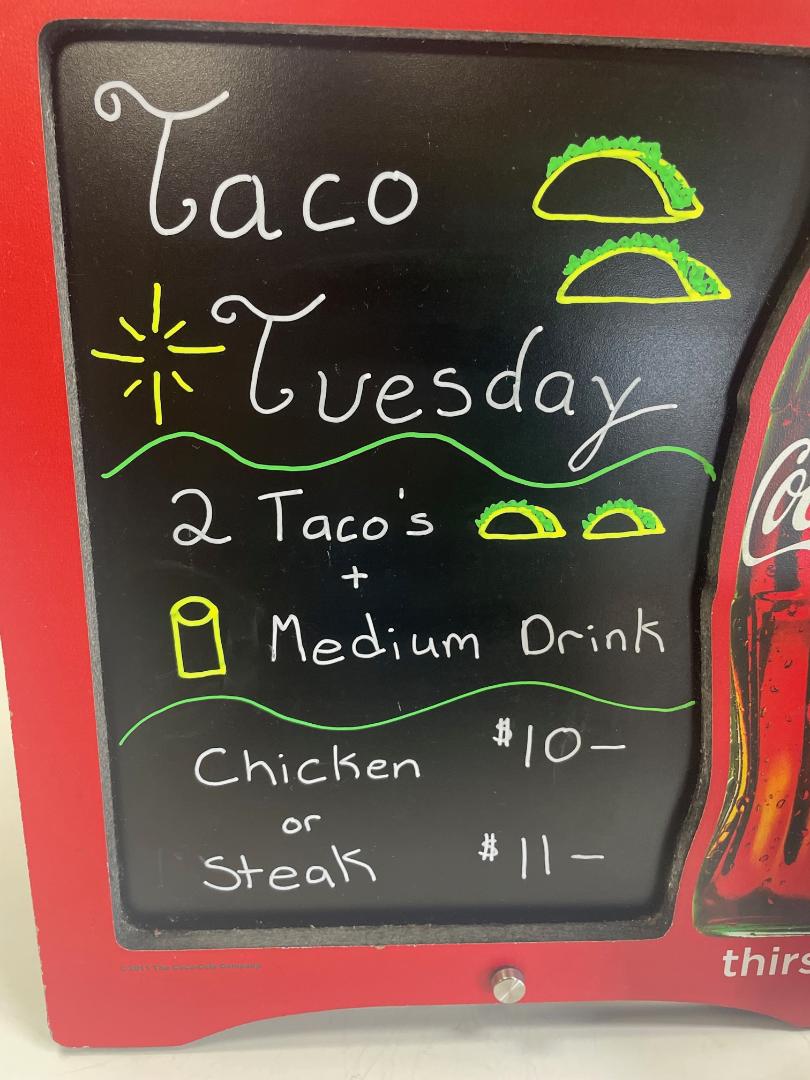 Taco
Tuesday
2 Taco's
+
Medium Drink
Chicken $10—
or
Steak $11—
©2011 The Coca-Cola Company